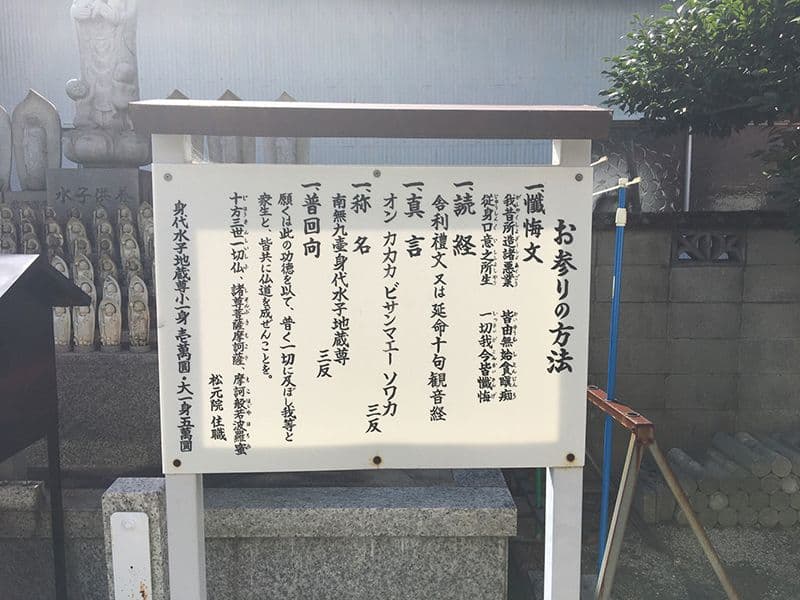 お参りの方法
一、懺悔文
我昔所造諸悪業 皆由無始貪瞋痴
従身口意之所生 一切我今皆懺悔
一、読経
舎利禮文又は延命十句観音経
一、真言
オン カカカ ビサンマエー ソワカ 三反
一、称名
南無九壷身代水子地蔵尊 三反
一、普回向
願くは此の功德を以て、普く一切に及ぼし我等と
衆生と、皆共に仏道を成ぜんことを。
十方三世一切仏、諸尊菩薩摩訶薩、摩訶般若波羅蜜
松元院 住職
身代水子地蔵尊小一身壱萬圓・大一身五萬圓
水子供養